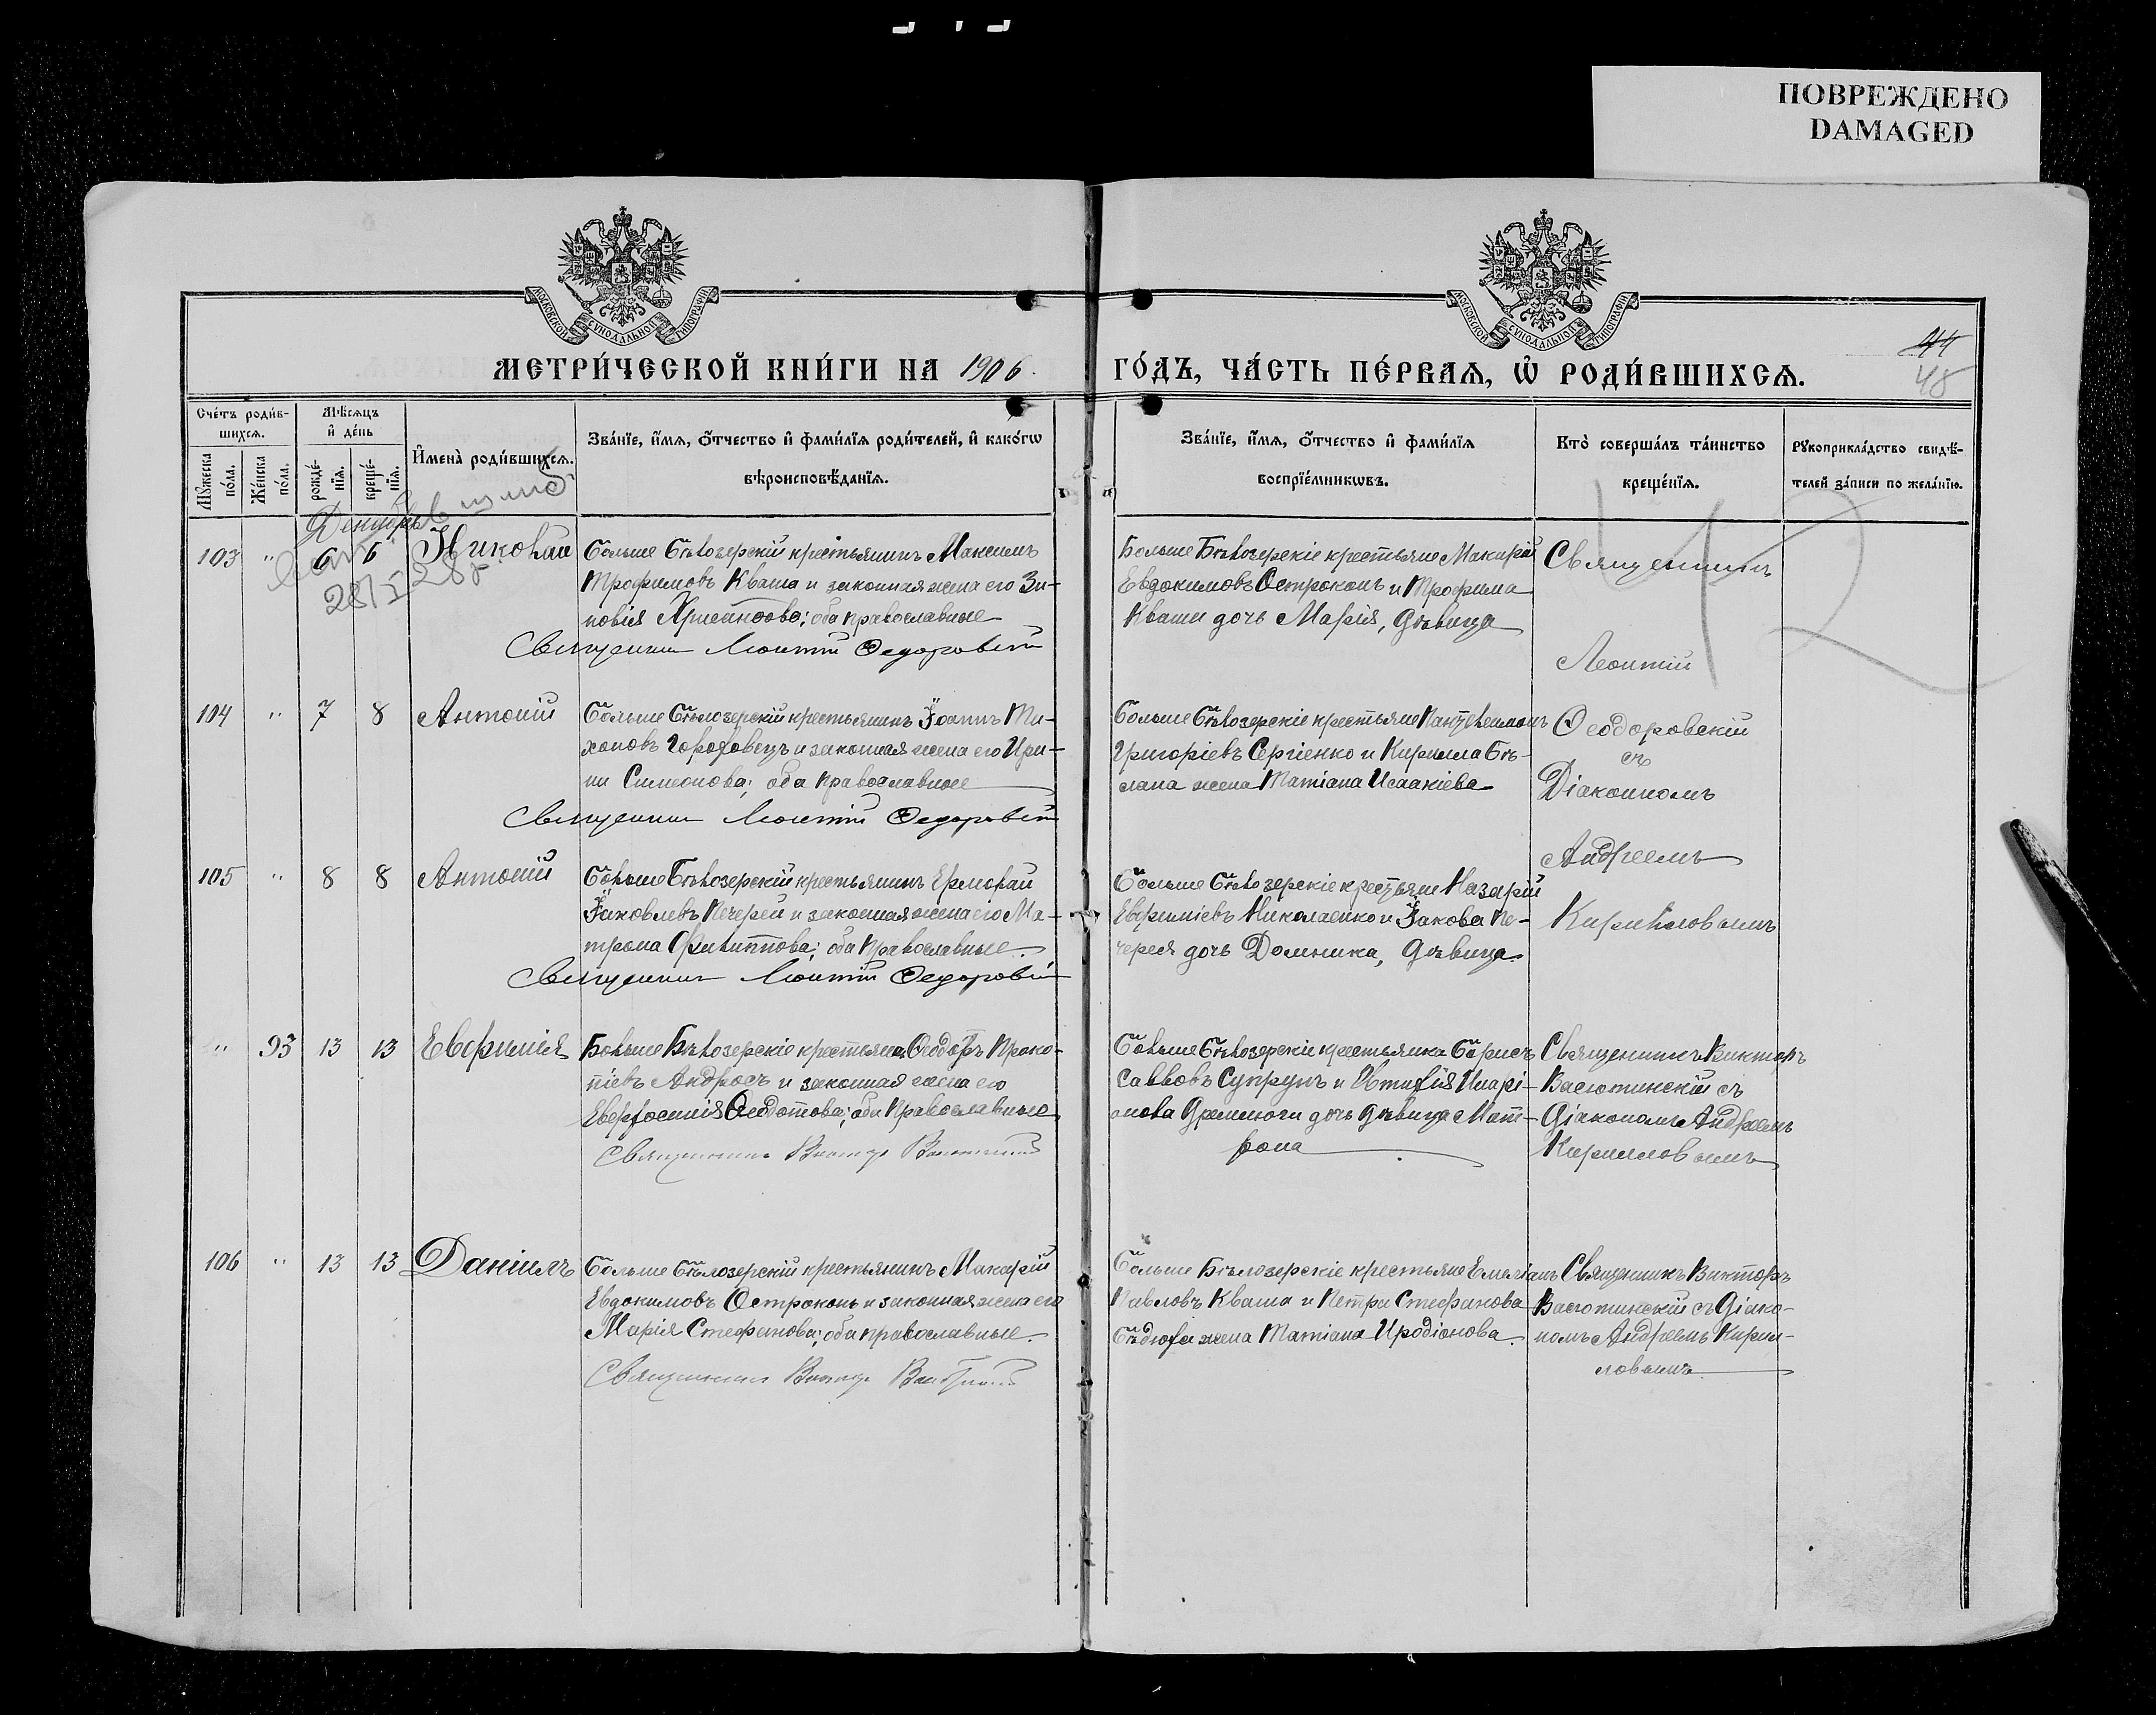 ПОВРЕЖДЕНО
DAMAGED
МОСКОВСКОЙ СѴНОДАЛЬНОЙ ТИПОГРАФІИ
МОСКОВСКОЙ СѴНОДАЛЬНОЙ ТИПОГРАФІИ
44
48
МЕТРИ́ЧЕСКОЙ КНИ́ГИ НА 1906 ГО́ДЪ, ЧА́СТЬ ПЕ́РВАѦ, Ѡ҆ РОДИ́ВШИХСѦ.
Сче́тъ роди́в-
шихсѧ.
Мꙋ́жеска по́ла.
Же́нска по́ла.
Мѣ́сѧцъ
и҆ де́нь
рожде́-
нїѧ.
креще́-
нїѧ.
И҆мена̀ роди́вшихсѧ.
Зва́нїе, и҆́мѧ, ѻ҆́тчество и҆ фами́лїѧ роди́телей, и҆ како́гѡ
вѣроисповѣ́данїѧ.
Зва́нїе, и҆́мѧ, ѻ҆́тчество и҆ фами́лїѧ
воспрїе́мникѡвъ.
Кто̀ соверша́лъ та́инство
креще́нїѧ.
Рꙋкоприкла́дство свидѣ́-
телей за́писи по жела́нїю.
Декабрь
28/I 28 г.
12
103 " 6 6 Николай
Больше Бѣлозерскій крестьянинъ Максимъ
Трофимовъ Кваша и законная жена его Зи-
новія Хрисанфова; оба православные
Священникъ Леонтій Федоровскій
Больше Бѣлозерскіе крестьяне Макарій
Евдокимовъ Остроконь и Трофима
Кваши дочь Марія, дѣвица
Священникъ
Леонтій
104 " 7 8 Антоній
Больше Бѣлозерскій крестьянинъ Іоаннъ Ти-
хоновъ Гороховецъ и законная жена его Ири-
на Симеонова; оба православные
Священникъ Леонтій Федоровскій
Больше Бѣлозерскіе крестьяне Пантелеимонъ
Григоріевъ Сергіенко и Кирилла Бѣ-
лана жена Татіана Исаакіева
Ѳеодоровскій
съ
Діакономъ
Андреемъ
Кирилловымъ
105 " 8 8 Антоній
Больше Бѣлозерскій крестьянинъ Ермолай
Іаковлевъ Печерей и законная жена его Ма-
трона Филиппова; оба православные.
Священникъ Леонтій Федоровскій
Больше Бѣлозерскіе крестьяне Назарій
Евфиміевъ Николаенко и Іакова Пе-
черея дочь Домника, дѣвица.
" 93 13 13 Евфимія
Больше Бѣлозерскіе крестьяне Ѳеодоръ Проко-
піевъ Андросъ и законная жена его
Евфросинія Ѳеодотова; оба православные
Священникъ Викторъ Васютинскій
Больше Бѣлозерскіе крестьянка Борисъ
Саввовъ Супрунъ и Иларі-
онова Дремлюги дочь дѣвица Мат-
рона
Священникъ Викторъ
Васютинскій съ
Діакономъ Андреемъ
Кирилловымъ
106 " 13 13 Даніилъ
Больше Бѣлозерскій крестьянинъ Макарій
Евдокимовъ Остроконь и законная жена его
Марія Стефанова; оба православные.
Священникъ Викторъ Васютинскій
Больше Бѣлозерскіе крестьяне Емеліанъ
Павловъ Кваша и Петра Стефанова
жена Татіана Иродіонова.
Священникъ Викторъ
Васютинскій съ Діако-
номъ Андреемъ Кирил-
ловымъ